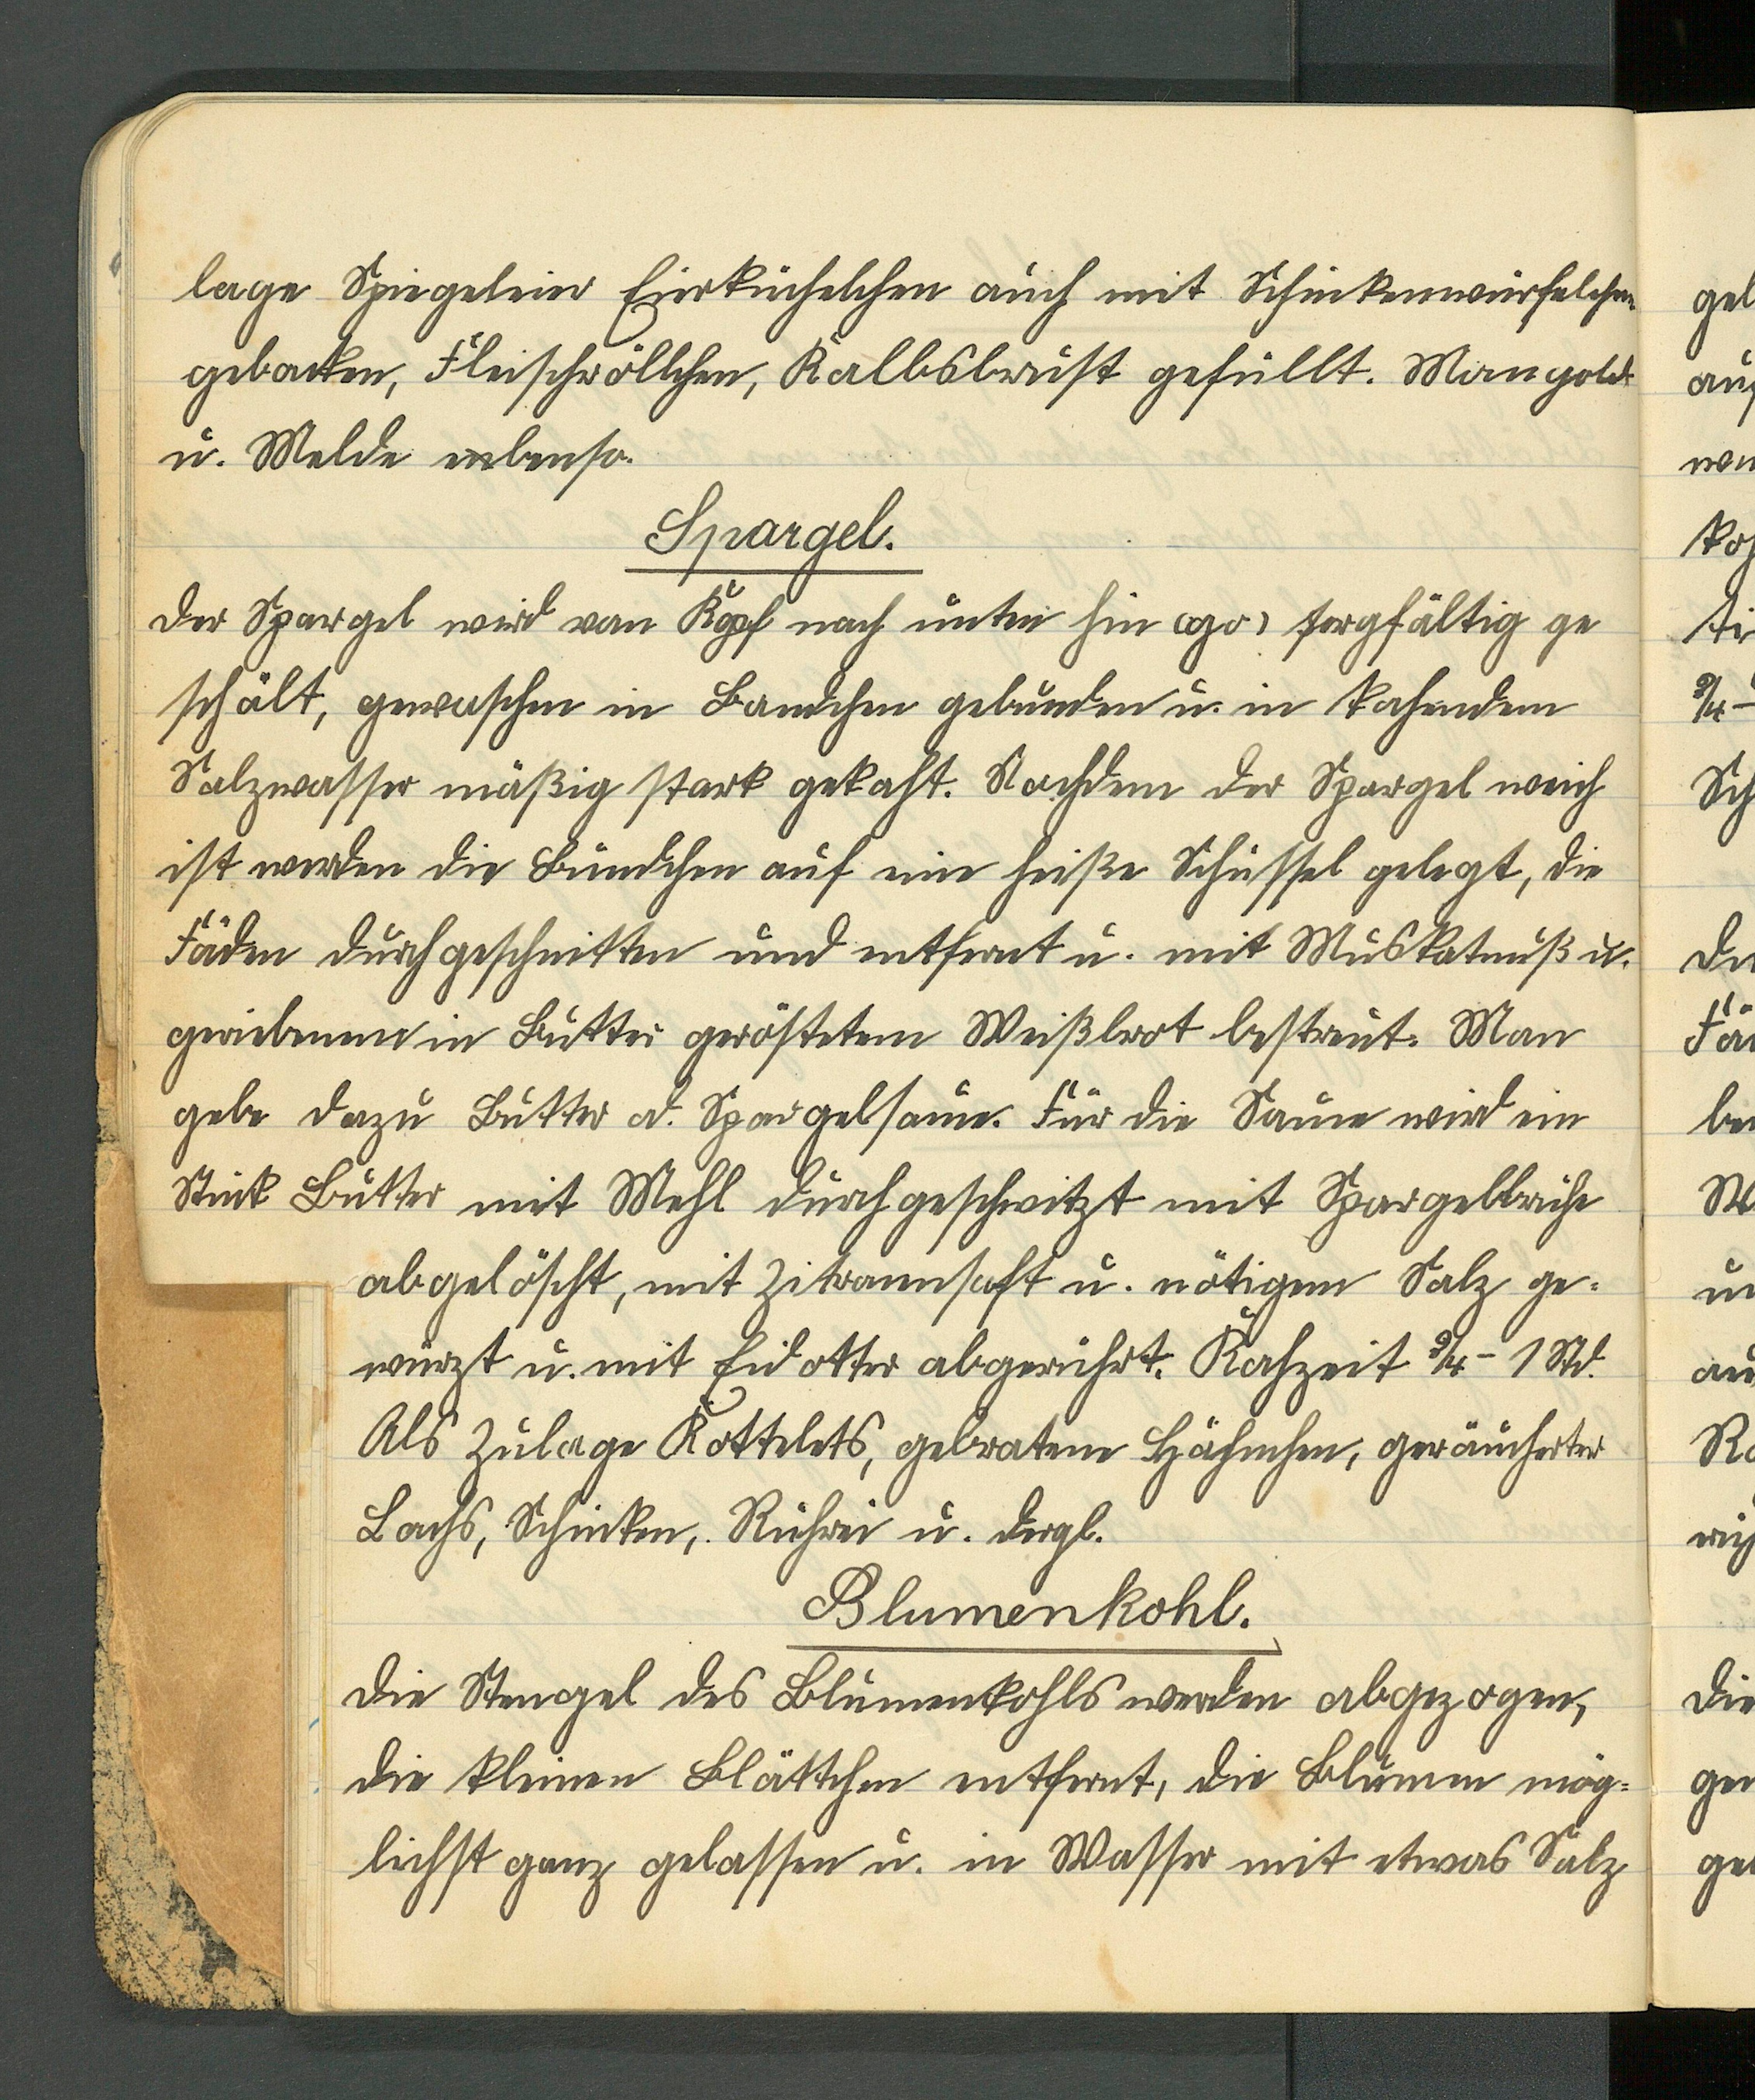 lage Spiegeleier Eierküchelchen auch mit Schinkenwürfelchen
gebacken, Fleischröllchen, Kalbsbrust gefüllt. Mangold
u. Melde ebenso.
Spargel.
Der Spargel wird vom Kopf nach unten hin sorgfältig ge
schält, gewaschen in Bündchen gebunden u. in kochendem
Salzwasser mäßig stark gekocht. Nachdem der Spargel weich
ist werden die Bündchen auf eine heiße Schüssel gelegt, die
Fäden durchgeschnitten und entfernt u. mit Muskatnuß u.
geriebenem in Butter geröstetem Weißbrot bestreut. Man
gebe dazu Butter od. Spargelsauce. Für die Sauce wird ein
Stück Butter mit Mehl durchgeschwitzt mit Spargelbrühe
abgelöscht, mit Zitronensaft u. nötigem Salz ge-
würzt u. mit Eidotter abgerührt. Kochzeit 3/4 - 1 Std.
Als Zulage Kottelets, gebratene Hähnchen, geräucherter
Lachs, Schinken, Rührei u. dergl.
Blumenkohl.
Die Stengel des Blumenkohls werden abgezogen,
die kleinen Blättchen entfernt, die Blumen mög-
lichst ganz gelassen u. in Wasser mit etwas Salz